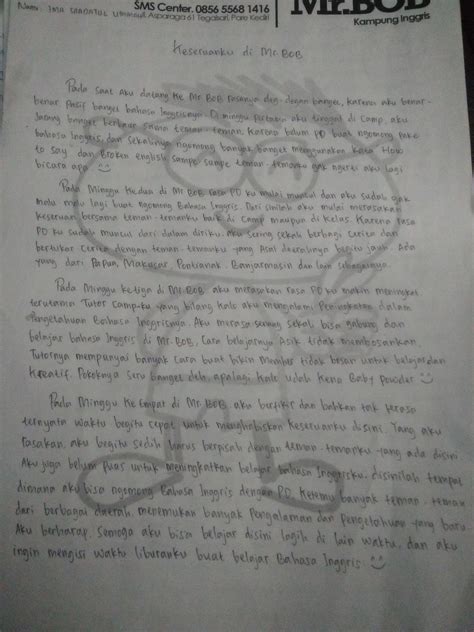 SMS Center. 0856 5568 1416
Mr.BOB
Nama:
Asparaga 61 Tegalsari. Pare Kediri
Kampung Inggris
Keseruanku di Mr.BOB
Pada saat aku datang ke Mr.BOB rasanya deg-degan banget, karena aku benar-
benar pasif banget bahasa Inggrisnya. Di minggu pertama aku tinggal di camp, aku
jarang banget berbaur sama teman-teman. Karena belum PD buat ngomong pake
bahasa Inggris, dan sekalinya ngomong banyak banget menggunakan kata How
to say, dan Broken english sampe sampe teman-temanku gak ngerti aku lagi
bicara apa
Pada Minggu Kedua di Mr.BOB rasa PD ku mulai muncul dan aku sudah gak
malu malu lagi buat ngomong Bahasa Inggris. Dari sinilah aku mulai merasakan
keseruan bersama teman-temanku baik di Camp maupun di Kelas. Karena rasa
PD ku sudah muncul dari dalam diriku. Aku sering sekali berbagi cerita dan
bertukar cerita dengan teman-temanku yang Asal daerahnya begitu jauh. Ada
yang dari Papua, Makasar, Pontianak, Banjarmasin dan lain sebagainya.
Pada Minggu ketiga di Mr.BOB, aku merasakan rasa PD ku makin meningkat
terutama Tutor camp-ku yang bilang kalo aku mengalami Peningkatan dalam
Pengetahuan Bahasa Inggrisnya. Aku merasa senang sekali bisa gabung dan
belajar bahasa Inggris di Mr.BOB, Cara belajarnya Asik tidak membosankan.
Tutornya mempunyai banyak Cara buat bikin Member tidak bosan untuk belajar dan
Kreatif. Pokoknya seru banget deh, apalagi kalo udah Keno Baby powder
Pada Minggu KeEmpat di Mr.BOB aku berfikir dan bahkan tak terasa
ternyata waktu begitu cepat untuk menghabiskan Keseruanku disini. Yang aku
rasakan, aku begitu sedih harus berpisah dengan teman-temanku yang ada disini
Aku juga belum Puas untuk meningkatkan belajar bahasa Inggrisku, disinilah tempat
dimana aku bisa ngomong Bahasa Inggris dengan PD. Ketemu banyak teman-teman
dari berbagai daerah, menemukan banyak Pengalaman dan Pengetahuan yang baru.
Aku berharap, Semoga aku bisa belajar disini lagih di lain waktu, dan aku
ingin mengisi waktu liburanku buat belajar Bahasa Inggris.